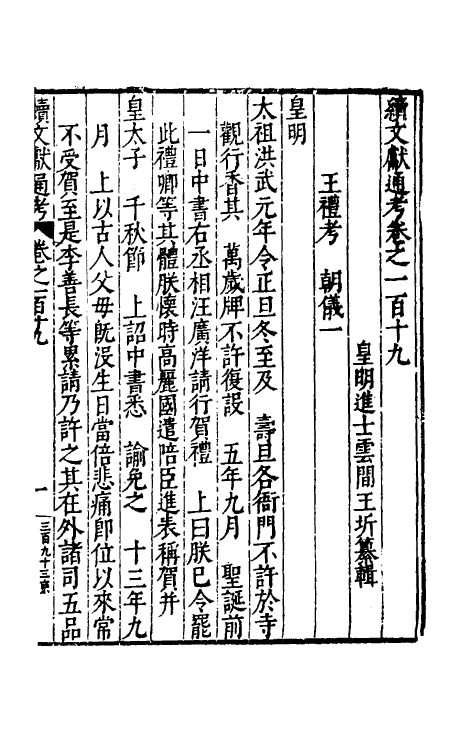 續文獻通考卷之一百十九
皇明進士雲間王圻纂輯
王禮考　朝儀一
皇明
太祖洪武元年令正旦冬至及　壽旦各衙門不許於寺
觀行香其　萬歲牌不許復設　五年九月　聖誕前
一日中書右丞相汪廣洋請行賀禮　上曰朕已令罷
此禮卿等其體朕懷時高麗國遣陪臣進表稱賀并
皇太子　千秋節　上詔中書悉　諭免之　十三年九
月　上以古人父母旣沒生日當倍悲痛卽位以來常
不受賀至是李善長等累請乃許之其在外諸司五品
續文獻通考　卷之一百十九　一　三百九十三